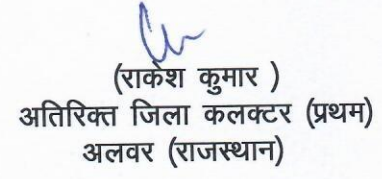 (राकेश कुमार )
अतिरिक्त जिला कलक्टर (प्रथम)
अलवर (राजस्थान)